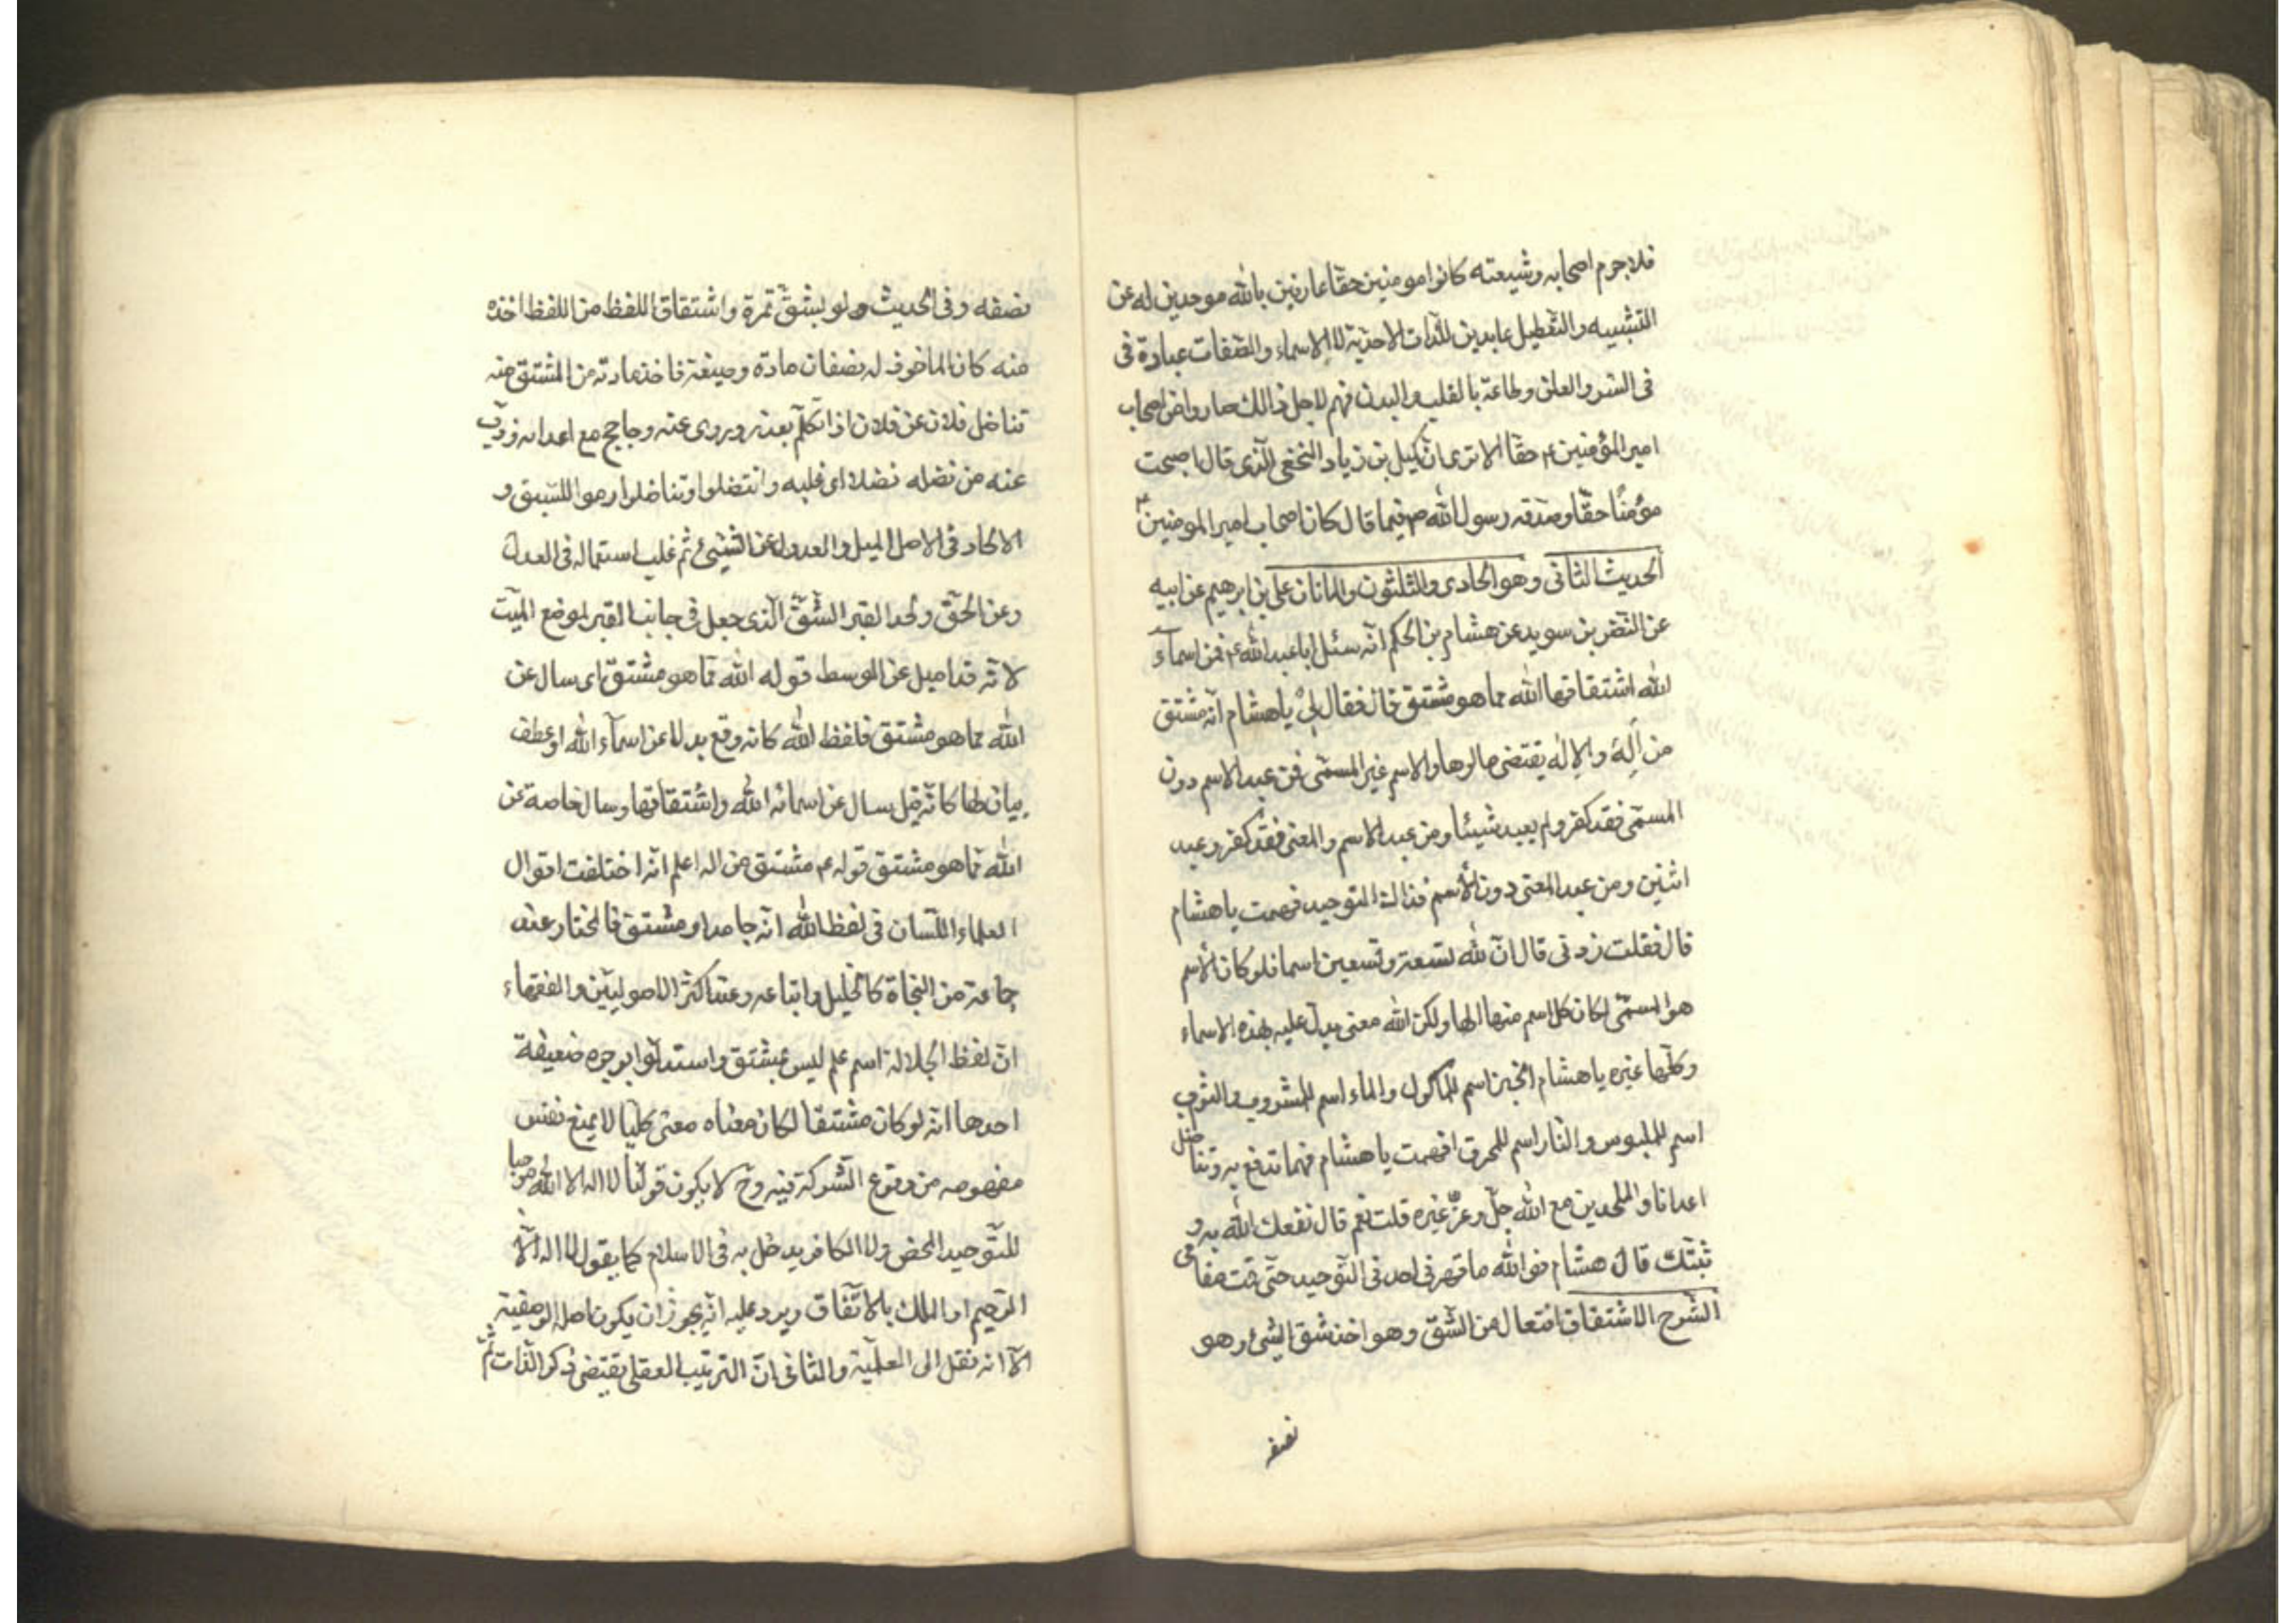 فلاجرم اصحابه وشيعته كانوا مومنين حقا عارفين بالله موحدين له عن
التشبيه والتعطيل عابدين للذات الاحدية لا الاسماء والصفات عبادة فى
فى السر والعلن وطاعة بالقلب والبدن فهم لاجل ذالك صاروا من اصحاب
امير المؤمنين ع حقا الا ترى ان كميل بن زياد النخعى الذى قال اصبحت
مؤمنًا حقا وصدقه رسول الله ص فيما قال كان اصحاب امير المومنين ع
الحديث الثانى وهو الحادى والثلثون والماتان على بن ابرهيم عن ابيه
عن النضر بن سويد عن هشام بن الحكم انه سئل ابا عبد الله ع عن اسماء
الله اشتقاقها الله مما هو مشتق قال فقال لى يا هشام انه مشتق
من اله والاله يقتضى مالوها والاسم غير المسمى فمن عبد الاسم دون
المسمى فقد كفر ولم يعبد شيئا ومن عبد الاسم والمعنى فقد كفر وعبد
اثنين ومن عبد المعنى دون الأسم فذالك التوحيد فهمت يا هشام
قال فقلت زدنى قال ان لله تسعة وتسعين اسما فلو كان الأسم
هو المسمى لكان كل اسم منها الها ولكن الله معنى يدل عليه بهذه الاسماء
وكلها غيره يا هشام الخبز اسم للماكول والماء اسم للمشروب والثوب
اسم للملبوس والنار اسم للمحرق افهمت يا هشام فهما تدفع به وتناضل
اعدانا والملحدين مع الله جل وعز غيره قلت نعم قال نفعك الله به و
ثبتك قال هشام فوالله ما قهرنى احد فى التوحيد حتى قمت مقامى
الشرح الاشتقاق افتعال من الشق وهو اخذ شق الشئ وهو
نصفه
نصفه وفى الحديث ولو بشق تمرة واشتقاق اللفظ من اللفظ اخذه
منه كان الماخوذ له نصفان مادة وصيغة فاخذ مادته من المشتق منه
تناضل فلان عن فلان اذا تكلم بعذره وروى عنه وحاجج مع اعدائه وذب
عنه من نضله نضلا اى غلبه وانتضلوا وتناضلوا رموا للسبق و
الالحاد فى الاصل الميل والعدول عن الشيئ ثم غلب استعماله فى العدول
وعن الحق ولحد القبر الشق الذى جعل فى جانب القبر لموضع الميت
لانه قد اميل عن الوسط قوله الله مما هو مشتق اى سال عن
الله مما هو مشتق فلفظ الله كانه وقع بدلا عن اسماء الله او عطف
بيان لها كانه قيل سال عن اسمائه الله واشتقاقها وسال خاصة عن
الله مما هو مشتق قوله ع مشتق من اله اعلم انه اختلفت اقوال
العلماء اللسان فى لفظ الله انه جامد او مشتق فالمختار عند
جماعة من النحاة كالخليل واتباعه وعند اكثر الاصوليين والفقهاء
ان لفظ الجلالة اسم علم ليس بمشتق واستدلوا بوجوه ضعيفة
احدها انه لو كان مشتقا لكان معناه معنى كليا لا يمنع نفس
مفهومه من وقوع الشركة فيه وح لا يكون قولنا لا اله الا الله موجبا
للتوحيد المحض ولا الكافر يدخل به فى الاسلام كما يقول لا اله الا
الرحيم او الملك بالاتفاق ويرد عليه انه يجوز ان يكون اصله الوصفية
الا انه نقل الى العلمية والثانى ان الترتيب العقلى يقتضى ذكر الذات ثم